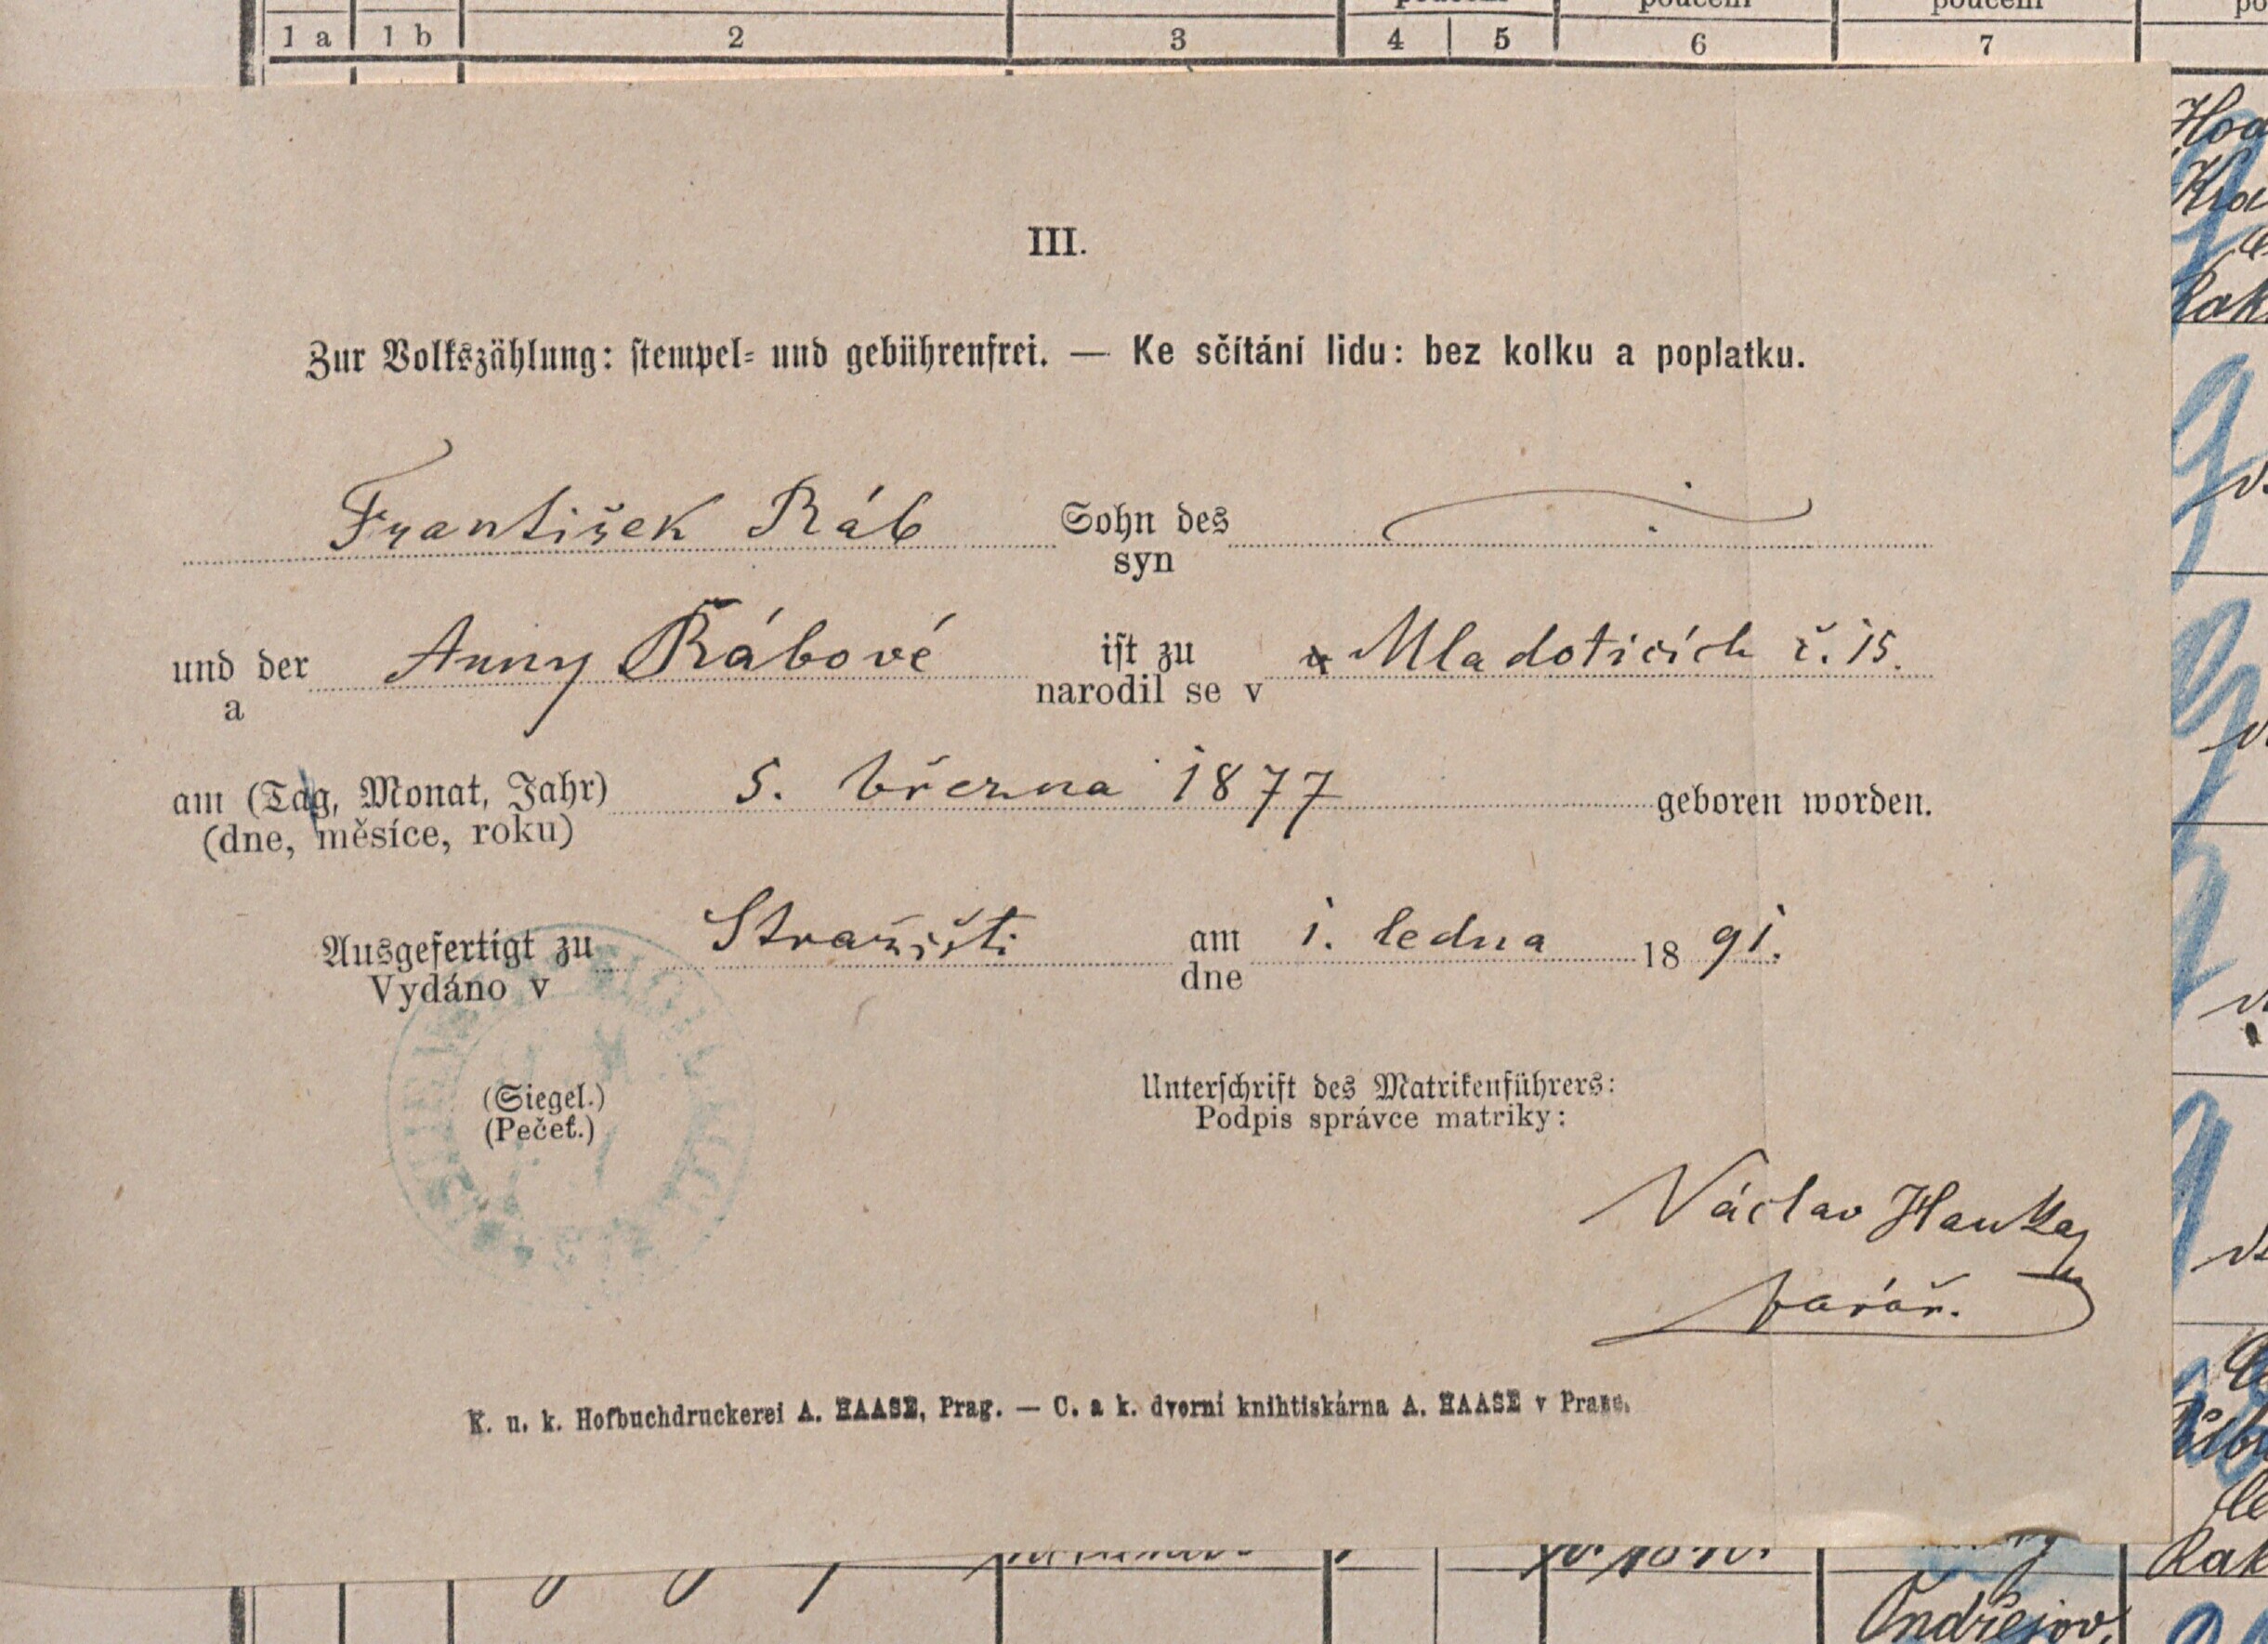 1 a 1 b 2 3 4 5 6 7
III.
Zur Volkszählung: stempel- und gebührenfrei. — Ke sčítání lidu: bez kolku a poplatku.
František Ráb Sohn des
syn
und der Anny Rábové ist zu Mladoticích č. 15.
a narodil se v
am (Tag, Monat, Jahr) 5. března 1877 geboren worden.
(dne, měsíce, roku)
Ausgefertigt zu Stražišti am 1. ledna 1891.
Vydáno v dne
(Siegel.)
(Pečeť.)
Unterschrift des Matrikenführers:
Podpis správce matriky:
Václav Hauka
farář.
K. u. k. Hofbuchdruckerei A. HAASE, Prag. — C. a k. dvorní knihtiskárna A. HAASE v Praze.
Ondřejov